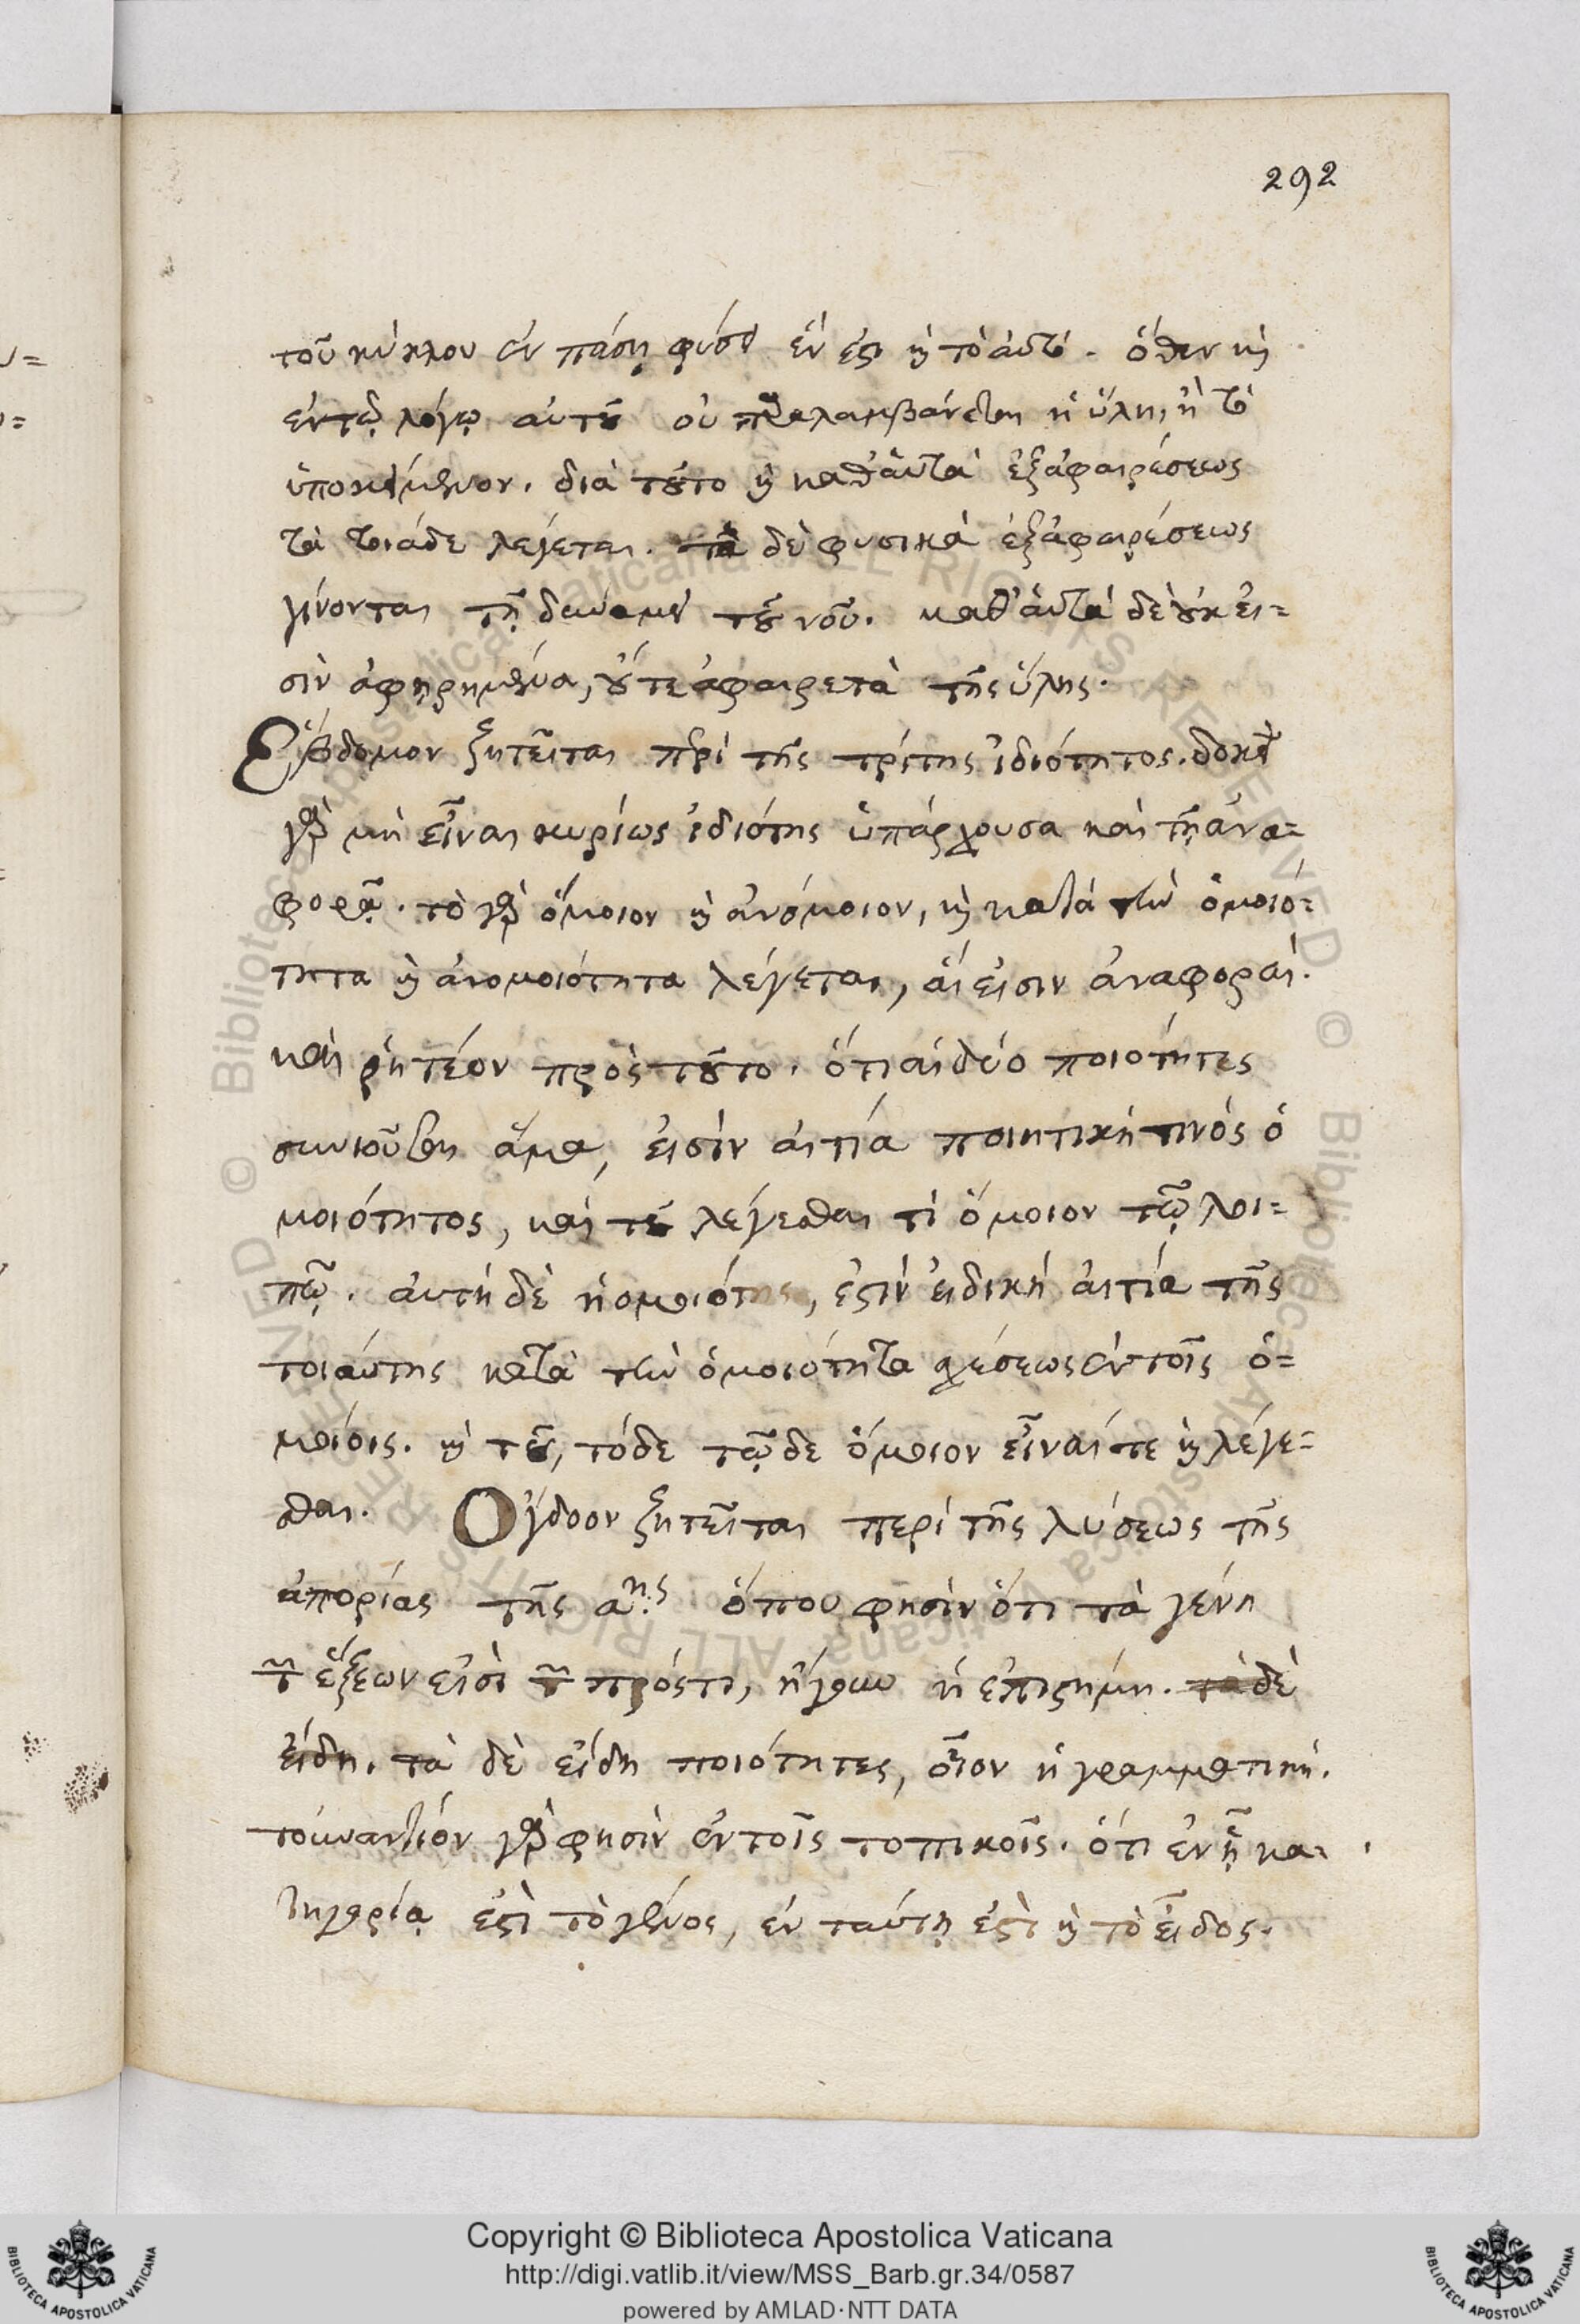 292
τοῦ κύκλου ἐν πάσῃ φύσει ἕν ἐστι καὶ τὸ αὐτό. ὅθεν καὶ
ἐν τῷ λόγῳ αὐτοῦ οὐ παραλαμβάνεται ἡ ὕλη, ἢ τὸ
ὑποκείμενον. διὰ τοῦτο καὶ καθ' αὑτὰ ἐξ ἀφαιρέσεως
τὰ τοιάδε λέγεται. τὰ δὲ φυσικὰ ἐξ ἀφαιρέσεως
γίνονται τῇ δυνάμει τοῦ νοῦ. καθ' αὑτὰ δὲ οὐκ εἰ=
σὶν ἀφῃρημένα, οὔτε ἀφαιρετὰ τῆς ὕλης.
Ἕβδομον ζητεῖται περὶ τῆς τρίτης ἰδιότητος. δοκεῖ
γὰρ μὴ εἶναι κυρίως ἰδιότης ὑπάρχουσα καὶ τῇ ἀνα=
φορᾷ. τὸ γὰρ ὅμοιον καὶ ἀνόμοιον, καὶ κατὰ τὴν ὁμοιό=
τητα καὶ ἀνομοιότητα λέγεται, αἵ εἰσιν ἀναφοραί.
καὶ ῥητέον πρὸς τοῦτο. ὅτι αἱ δύο ποιότητες
συνιοῦσαι ἅμα, εἰσὶν αἰτία ποιητική τινὸς ὁ
μοιότητος, καὶ τοῦ λέγεσθαι τὶ ὅμοιον τῷ λοι=
πῷ. αὐτὴ δὲ ἡ ὁμοιότης, ἐστὶν εἰδικὴ αἰτία τῆς
τοιαύτης κατὰ τὴν ὁμοιότητα σχέσεως ἐν τοῖς ὁ=
μοίοις. καὶ τοῦ, τόδε τῷδε ὅμοιον εἶναί τε καὶ λέγε=
σθαι. Ὄγδοον ζητεῖται περὶ τῆς λύσεως τῆς
ἀπορίας τῆς α.ης ὅπου φησὶν ὅτι τὰ γένη
τῶν ἕξεων εἰσὶ τῶν πρός τι, ἤγουν ἡ ἐπιστήμη. τὰ δὲ
εἴδη. τὰ δὲ εἴδη ποιότητες, οἷον ἡ γραμματική.
τοὐναντίον γὰρ φησὶν ἐν τοῖς τοπικοῖς. ὅτι ἐν ᾗ κα=
τηγορίᾳ ἐστὶ τὸ γένος, ἐν ταύτῃ ἐστὶ καὶ τὸ εἶδος.
Copyright © Biblioteca Apostolica Vaticana
http://digi.vatlib.it/view/MSS_Barb.gr.34/0587
powered by AMLAD·NTT DATA